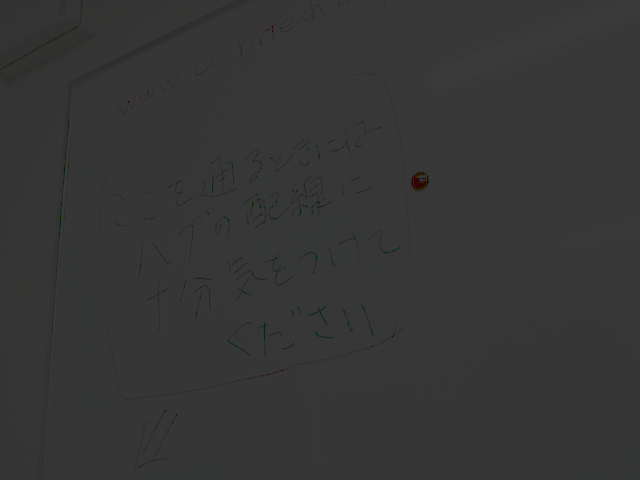 www.cc.nitech.ac.j
ここを通るときには
ハブの配線に
十分気をつけて
ください